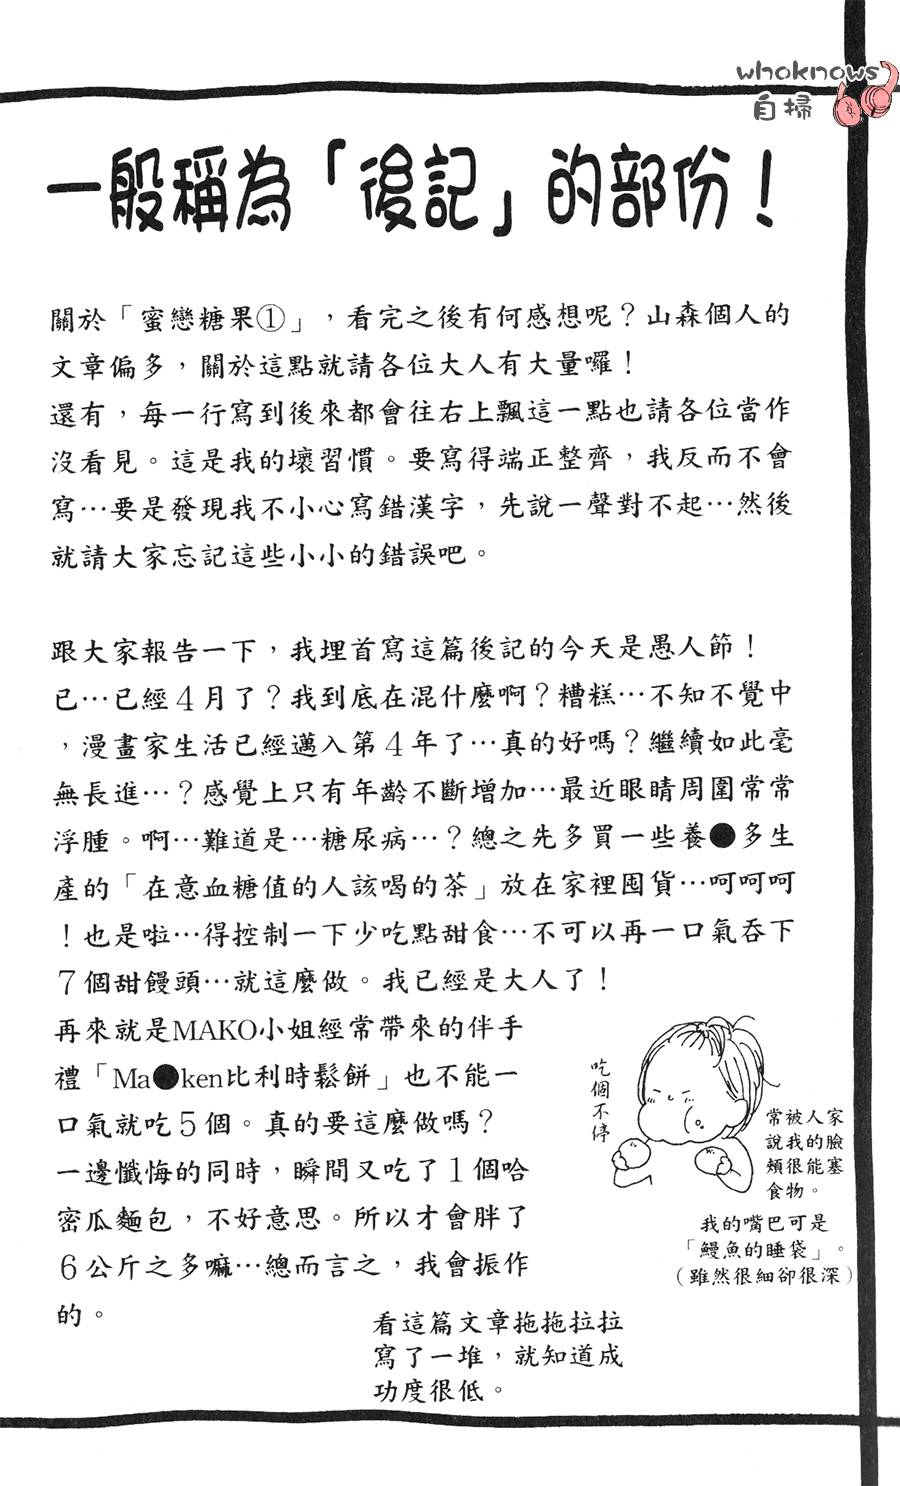 whoknows
自掃
一般稱為「後記」的部份！
關於「蜜戀糖果①」，看完之後有何感想呢？山森個人的
文章偏多，關於這點就請各位大人有大量囉！
還有，每一行寫到後來都會往右上飄這一點也請各位當作
沒看見。這是我的壞習慣。要寫得端正整齊，我反而不會
寫…要是發現我不小心寫錯漢字，先說一聲對不起…然後
就請大家忘記這些小小的錯誤吧。
跟大家報告一下，我埋首寫這篇後記的今天是愚人節！
已…已經4月了？我到底在混什麼啊？糟糕…不知不覺中
，漫畫家生活已經邁入第4年了…真的好嗎？繼續如此毫
無長進…？感覺上只有年齡不斷增加…最近眼睛周圍常常
浮腫。啊…難道是…糖尿病…？總之先多買一些養●多生
產的「在意血糖值的人該喝的茶」放在家裡囤貨…呵呵呵
！也是啦…得控制一下少吃點甜食…不可以再一口氣吞下
7個甜饅頭…就這麼做。我已經是大人了！
再來就是MAKO小姐經常帶來的伴手
禮「Ma●ken比利時鬆餅」也不能一
口氣就吃5個。真的要這麼做嗎？
一邊懺悔的同時，瞬間又吃了1個哈
密瓜麵包，不好意思。所以才會胖了
6公斤之多嘛…總而言之，我會振作
的。
吃個不停
常被人家
說我的臉
頰很能塞
食物。
我的嘴巴可是
「鰻魚的睡袋」。
（雖然很細卻很深）
看這篇文章拖拖拉拉
寫了一堆，就知道成
功度很低。